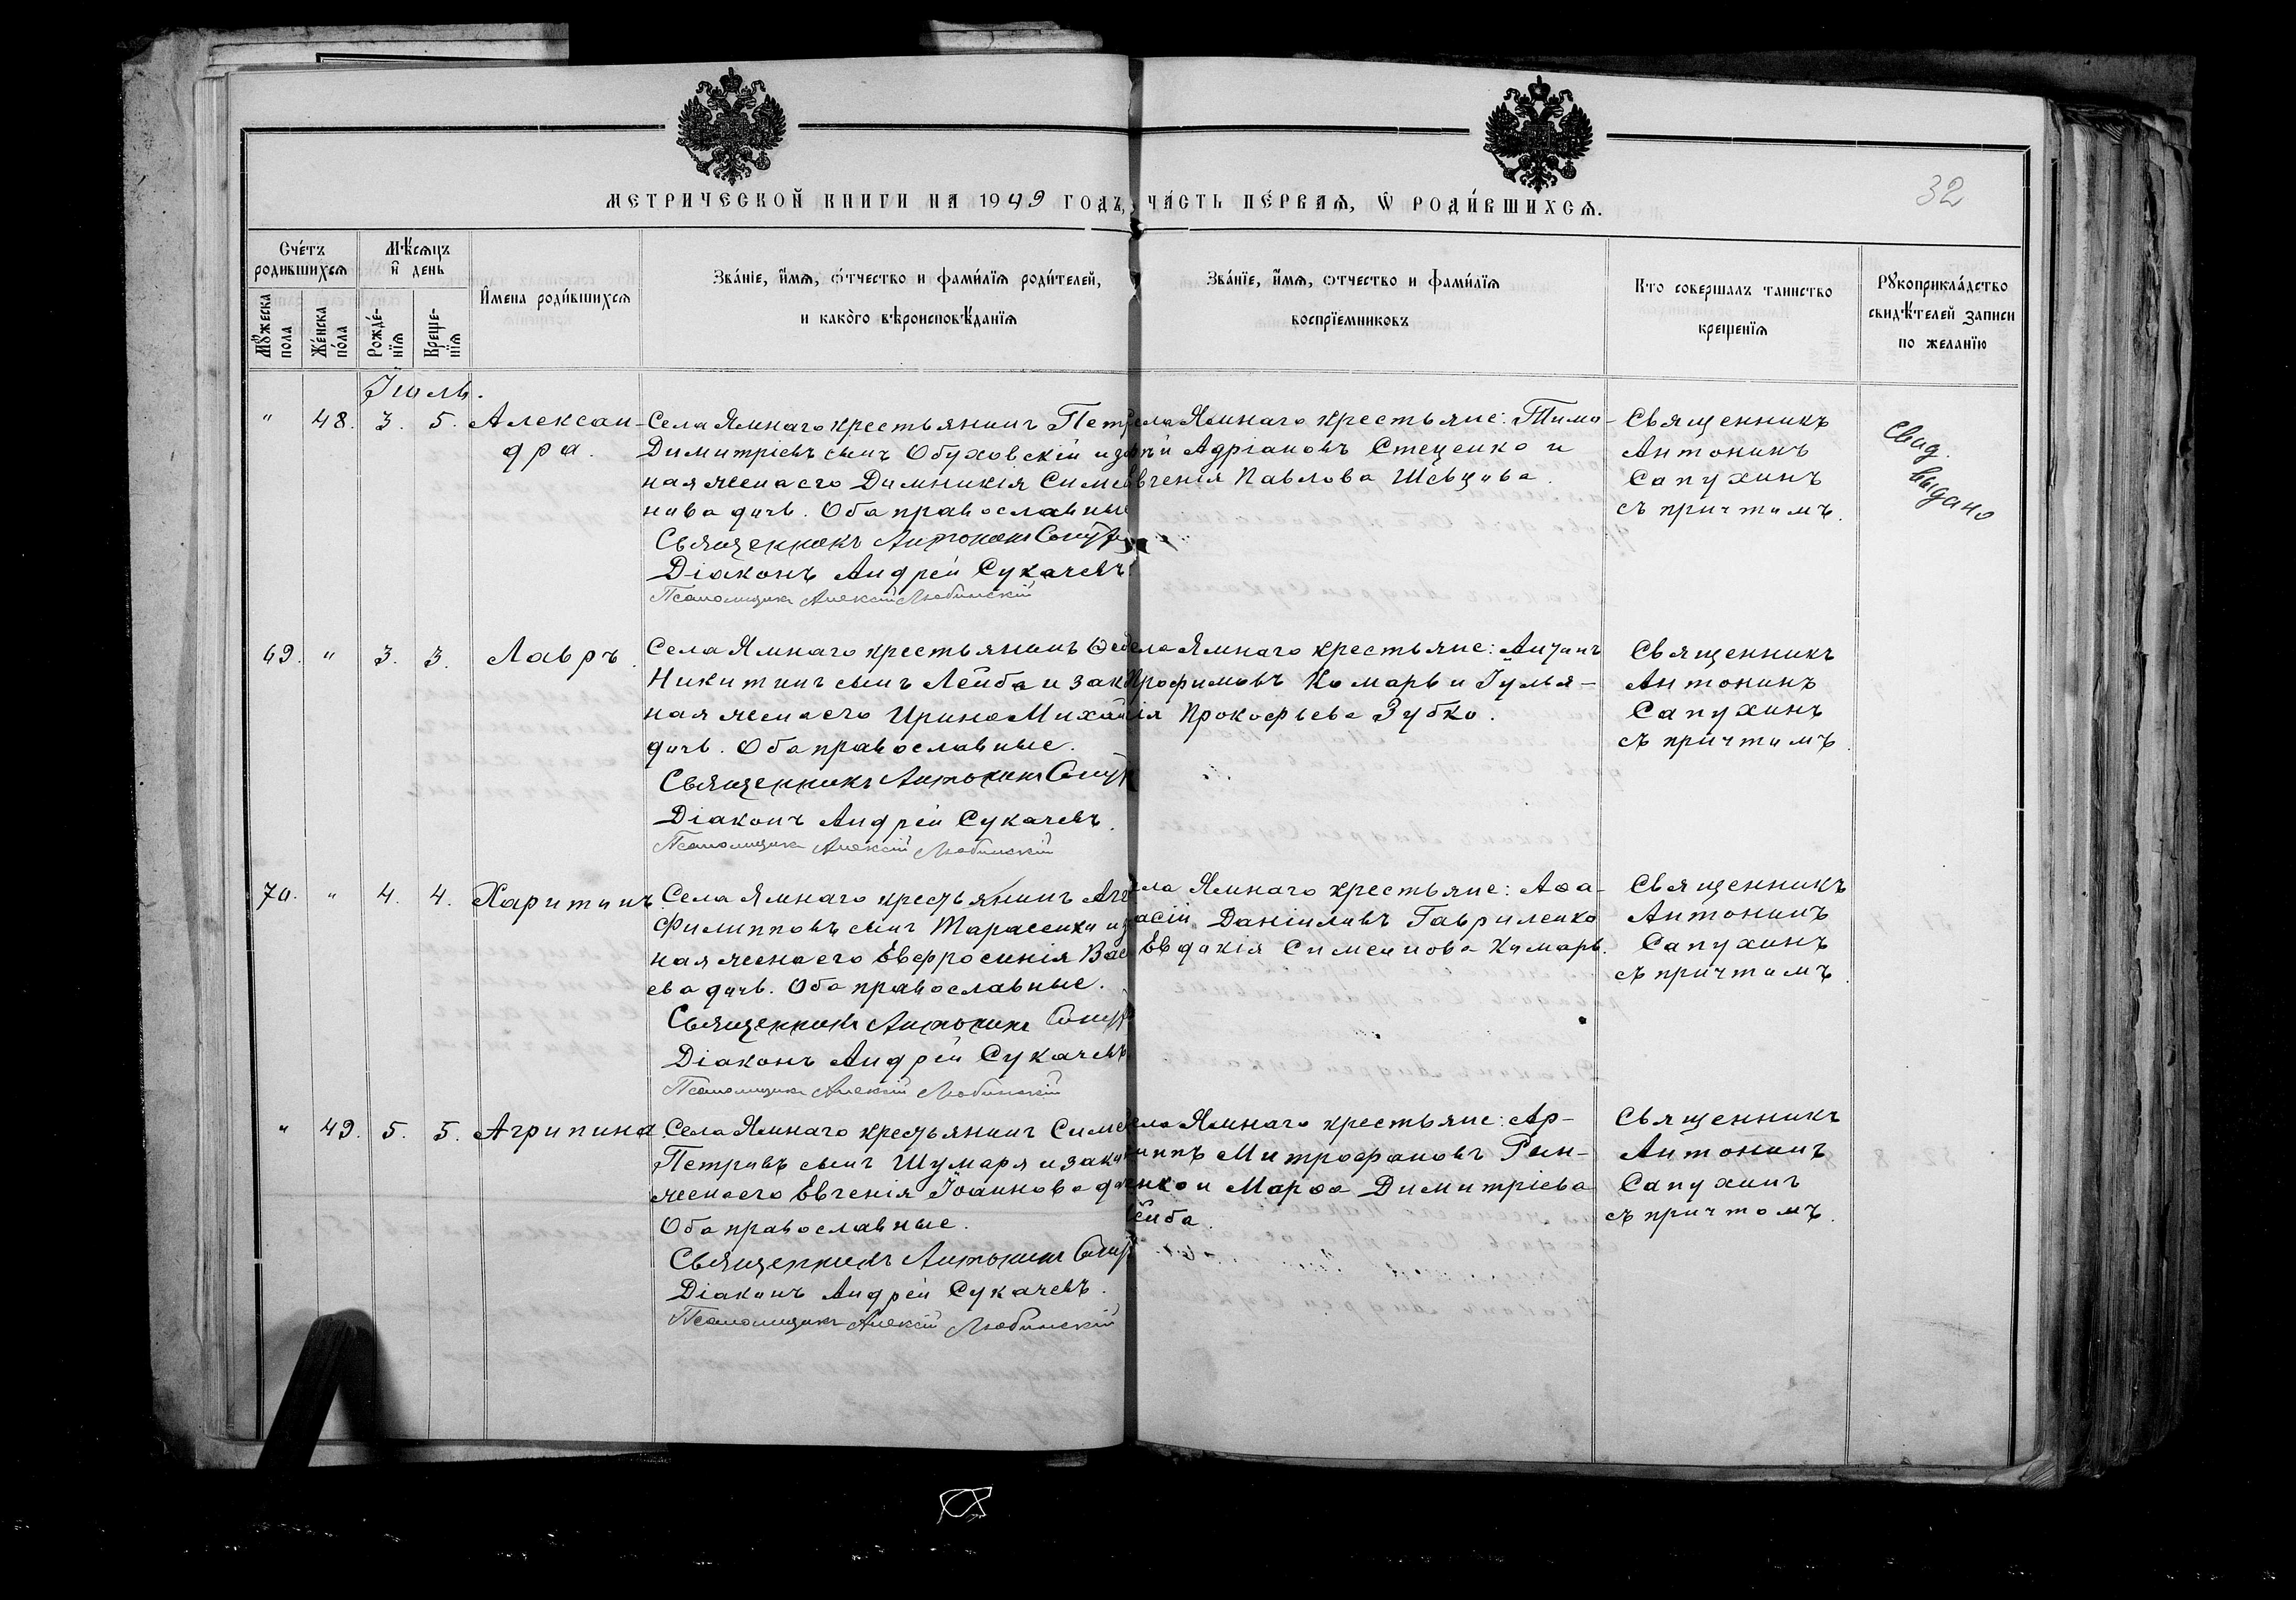 МЕТРИЧЕСКОЙ КНИГИ НА 1909 ГОДЪ, ЧАСТЬ ПЕРВАЯ, Ѡ РОДИВШИХСЯ.
32
Счетъ родившихся
Мужеска пола
Женска пола
Мѣсяцъ и день
Рожде-нія
Креще-нія
Имена родившихся
Званіе, имя, отчество и фамилія родителей,
и какого вѣроисповѣданія
Званіе, имя, отчество и фамилія
воспріемниковъ
Кто совершалъ таинство
крещенія
Рукоприкладство
свидѣтелей записи
по желанію
Іюль.
" 48. 3. 5. Алексан-
дра.
Села Ямнаго крестьянинъ Петр
Димитріевъ сынъ Обуховскій и за
ная жена его Домникія Симео
нова дочь. Оба православные
Священникъ Антонинъ Сапух
Діаконъ Андрей Сукачевъ.
Псаломщикъ Алексій Любинскій
ела Ямнаго крестьяне: Тимо-
ѳей Адріановъ Стеценко и
Евгенія Павлова Шевцова.
Священникъ
Антонинъ
Сапухинъ
съ причтомъ.
Свид.
выдано
69. " 3. 3. Лавръ.
Села Ямнаго крестьянинъ Ѳео
Никитинъ сынъ Лейба и зак
ная жена его Ирина Михай
дочь. Оба православные.
Священникъ Антонинъ Сапух
Діаконъ Андрей Сукачевъ.
Псаломщикъ Алексій Любинскій
ела Ямнаго крестьяне:
Трофимовъ Комарь и Іуліа-
нія Прокофьева Зубко.
Священникъ
Антонинъ
Сапухинъ
съ причтомъ.
70. " 4. 4. Харитинъ
Села Ямнаго крестьянинъ
Филипповъ сынъ Тарасенко и за
ная жена его Евфросинія Вас
ева дочь. Оба православные.
Священникъ Антонинъ Сапух
Діаконъ Андрей Сукачевъ
Псаломщикъ Алексій Любинскій
ела Ямнаго крестьяне: Аѳа-
насій Даніиловъ Гавриленко
Евдокія Симеонова Комарь.
Священникъ
Антонинъ
Сапухинъ
съ причтомъ.
" 49. 5. 5. Агрипина.
Села Ямнаго крестьянинъ Симе
Петровъ сынъ Шумаря и зако
жена его Евгенія Іоаннова до
Оба православные.
Священникъ Антонинъ Сапух
Діаконъ Андрей Сукачевъ.
Псаломщикъ Алексій Любинскій
ела Ямнаго крестьяне: Ар-
хиппъ Митрофановъ
енко и Марѳа Димитріева
Лейба.
Священникъ
Антонинъ
Сапухинъ
съ причтомъ.